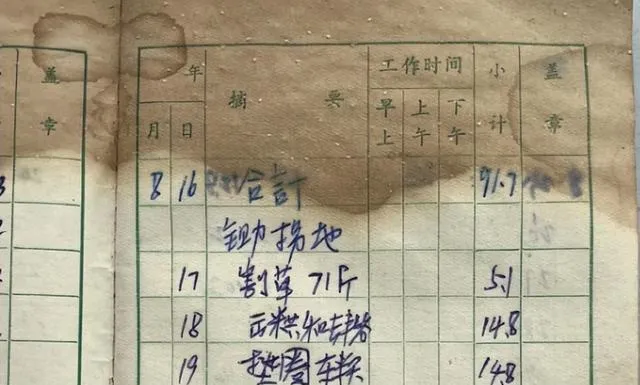 盖章
年 摘要 工作时间 小计 盖章
月 日 早上 上午 下午
8 16 合計 91.7
锄拐地
17 割草71斤 5.1
18 14.8
19 垫圈 14.8